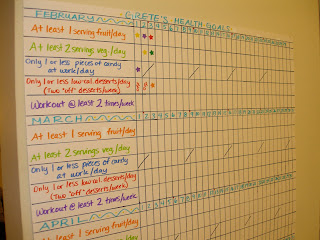 GRETE'S HEALTH GOALS
FEBRUARY 1 2 3 4 5 6 7 8 9 10 11 12
At least 1 serving fruit/day
At least 2 servings veg./day
Only 1 or less pieces of candy
at work/day
Only 1 or less low cal. desserts/day
(Two "off" desserts/week)
Workout @ least 2 times/week
MARCH
At least 1 serving fruit/day
At least 2 servings veg./day
Only 1 or less pieces of candy
at work/day
Only 1 or less low cal. desserts/day
(Two "off" desserts/week)
Workout @ least 2 times/week
APRIL
At least 1 serving fruit/day